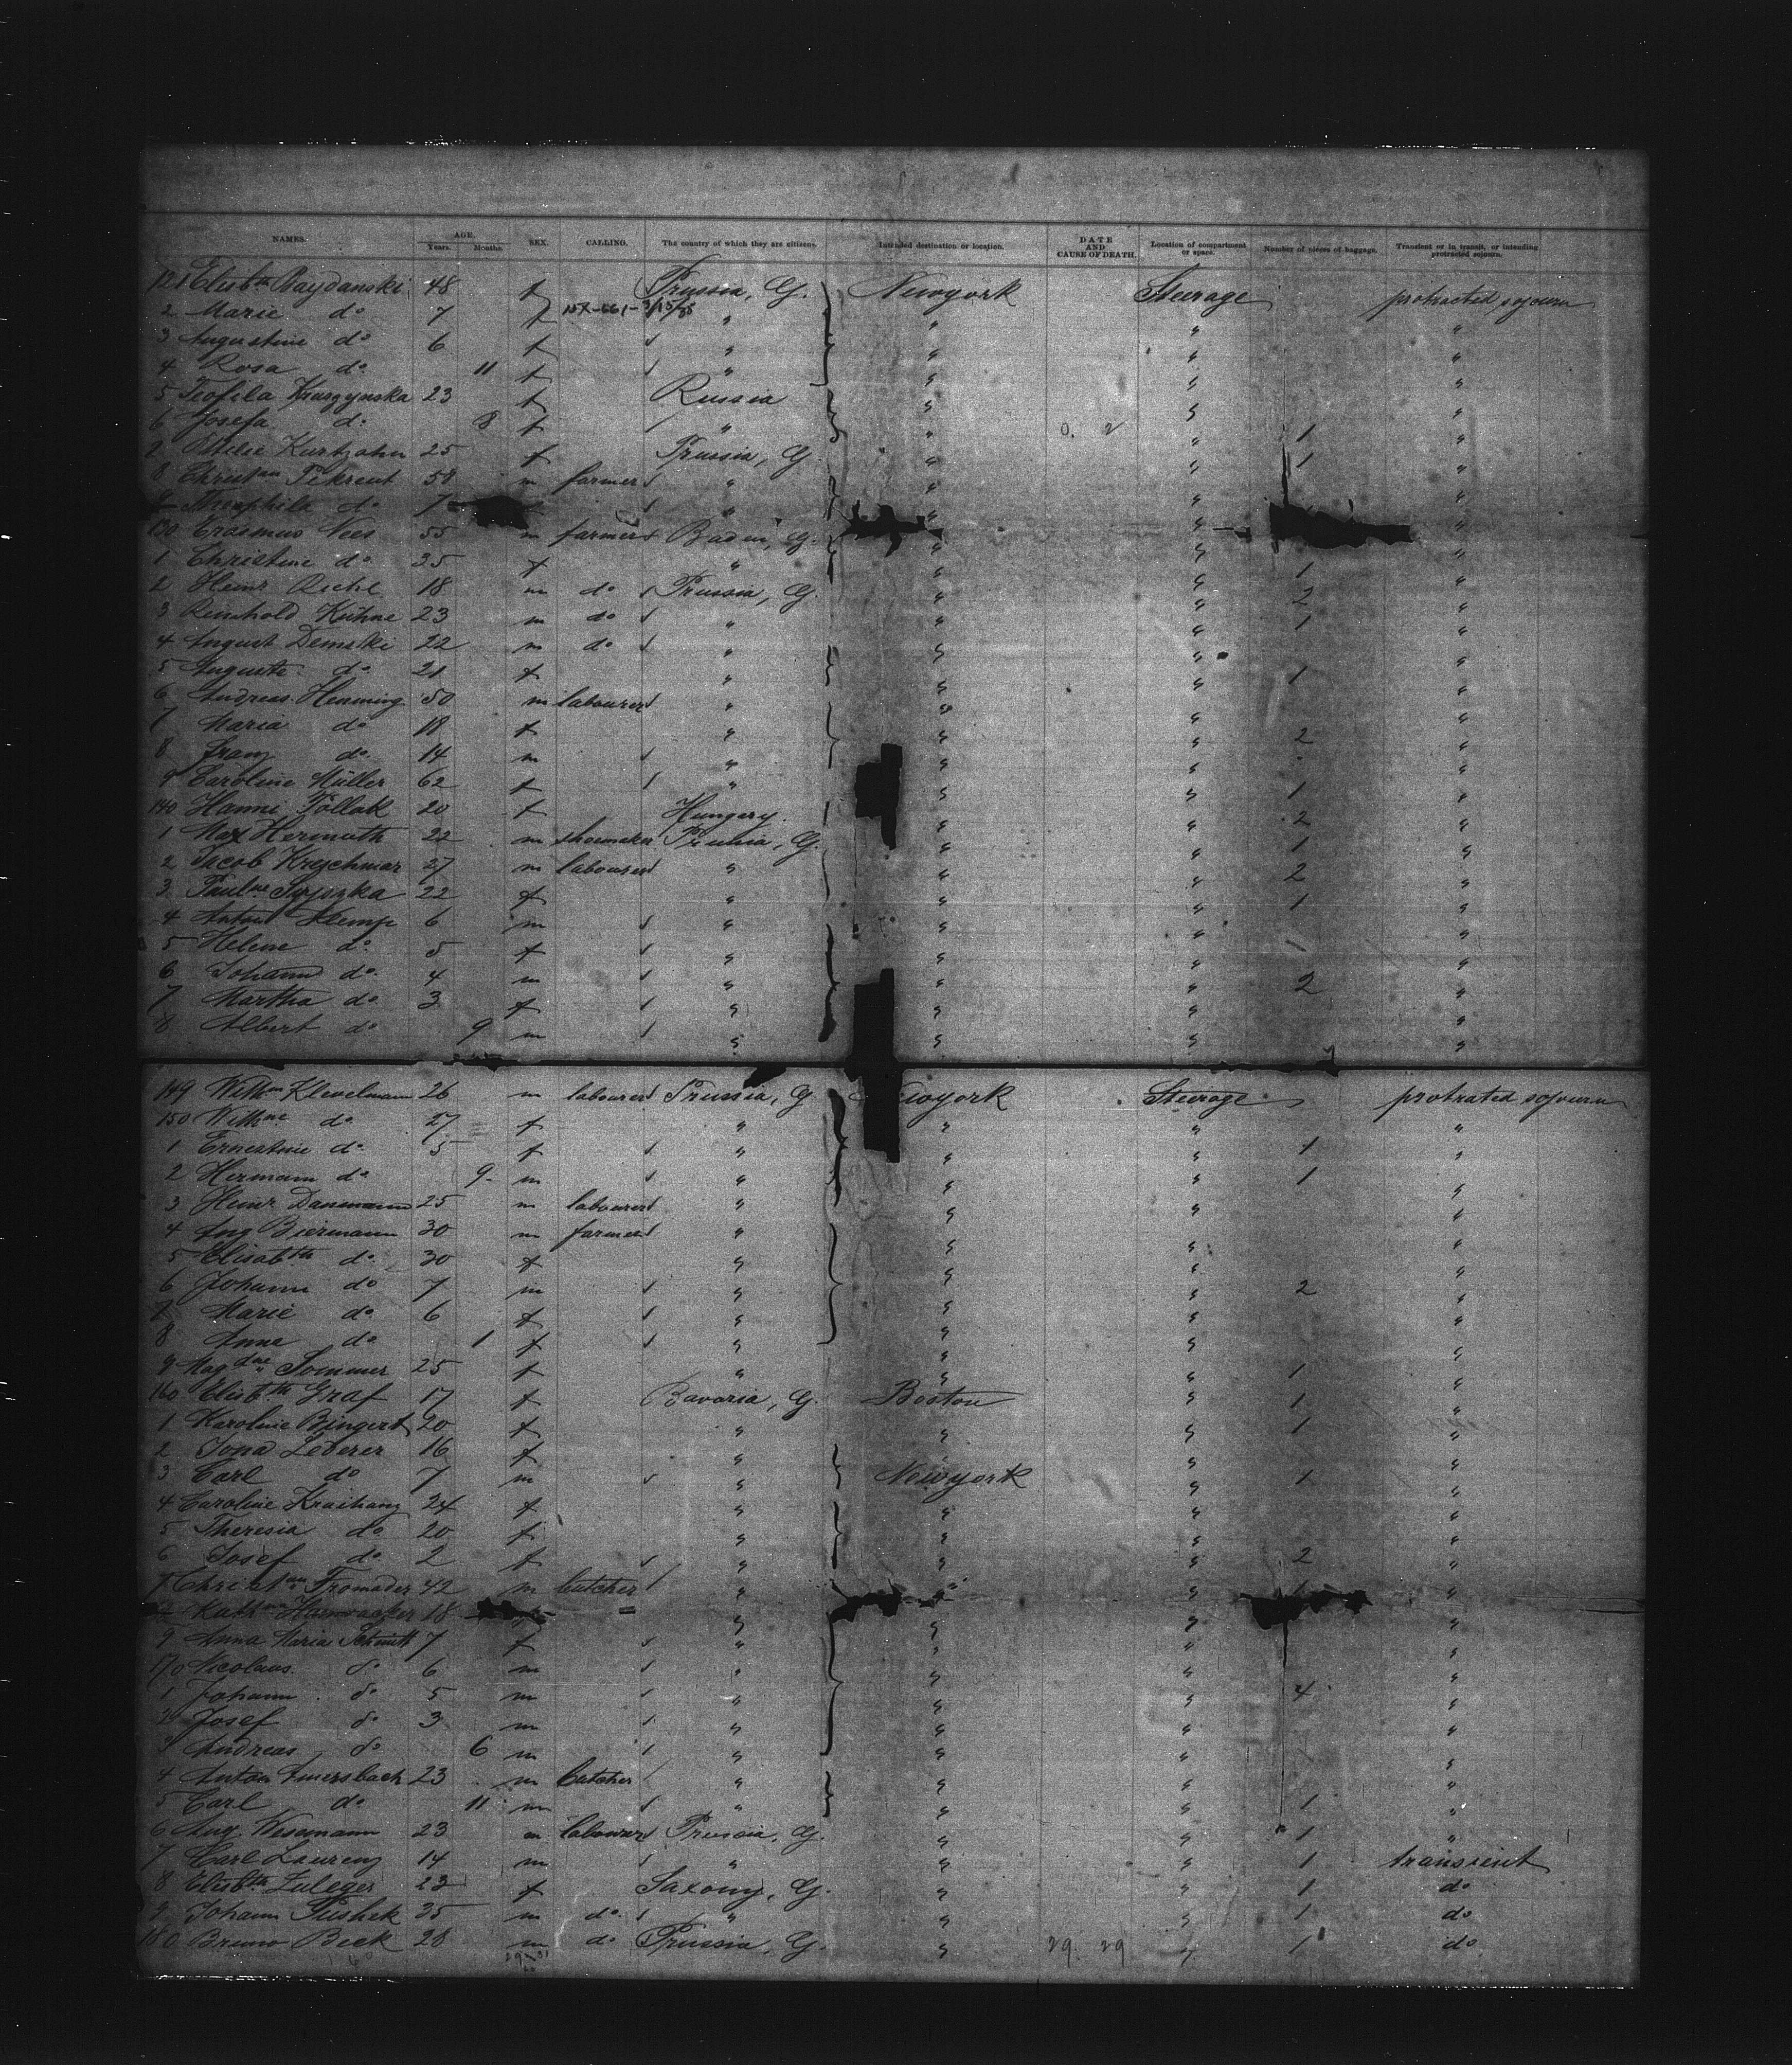 NAMES. AGE. Years. Months. SEX. CALLING. The country of which they are citizens. Intended destination or location. DATE AND CAUSE OF DEATH. Location of compartment or space. Number of pieces of baggage. Transient or in transit, or intending protracted sojourn.
121 Elisbth 48 f Prussia, G. Newyork Steerage protracted sojourn
2 Marie do 7 f " " " "
3 Augustine do 6 f " " " "
4 Rosa do 11 f " " " "
5 Teofila 23 f Russia " " "
6 Josefa do 8 f " " " 1 "
7 Ottilie Kurtzahn 25 f Prussia, G. " " 1 "
8 Christan Pekrent 58 m farmer " " " "
9 Theophila do 7 " " " "
130 Erasmus Nees 55 m farmer Baden, G. " " "
1 Christine do 35 f " " " 1 "
2 Heinr Riehl 18 m do Prussia, G. " " 2 "
3 Reinhold Kühne 23 m do " " " 1 "
4 August Demski 22 m do " " " "
5 Auguste do 21 f " " " 1 "
6 Andreas Henning 50 m labourer " " " "
7 Maria do 18 f " " " 2 "
8 Franz do 14 m " " " "
9 Caroline Müller 62 f " " " 1 "
140 Hanni Pollak 20 f Hungery. " " 2 "
1 Max Hermuth 22 m shoemaker Prussia, G. " " 1 "
2 Jacob Kreschmar 27 m labourer " " " 2 "
3 Paulne 22 f " " " 1 "
4 Anton Klemp 6 m " " " "
5 Helene do 5 f " " " "
6 Johann do. 4 m " " " 2 "
7 Martha do 3 f " " " "
8 Albert do 9 m " " " "
149 Wilhm Klevelmann 26 m labourer Prussia, G Newyork Steerage protrated sojourn
150 Wilhne do 27 f " " " "
1 Ernestine do 5 f " " " 1 "
2 Hermann do 9 m " " " 1 "
3 Heinr Danemann 25 m labourer " " " "
4 Aug Biermann 30 m farmer " " " "
5 Elisabth do. 30 f " " " "
6 Johann do 7 m " " " 2 "
7 Marie do 6 f " " " "
8 Anna do 1 f " " " "
9 Magdne Sommer 25 f " " " 1 "
160 Elisbth Graf 17 f Bavaria, G. Boston " 1 "
1 Karoline Bingert 20 f " " " 1 "
2 Lederer 16 f " " "
3 Carl do 7 m " Newyork " 1 "
4 Caroline 24 f " " " "
5 Theresia do 20 f " " " "
6 Josef do 2 f " " " 2 "
7 Christan Fromader 42 m butcher " " " 1 "
Kathna 18 " " " "
9 Anna Maria Schmitt 7 f " " " "
170 Nicolaus. do 6 m " " " "
1 Johann do 5 m " " " 4 "
2 Josef do 3 m " " " "
3 Andreas do 6 m " " " "
4 Anton 23 m butcher " " " "
5 Carl do 11 m " " " 1 "
6 Aug. Wesemann 23 m labourer Prussia, G. " " 1 "
7 Carl Laurenz 14 m " " " 1 transient
8 Elisbth 23 f Saxony, G. " " 1 do
9 Johann 35 m do. " " " 1 do
180 Bruno Beck 28 m do Prussia, G. " 29. 29 " 1 do